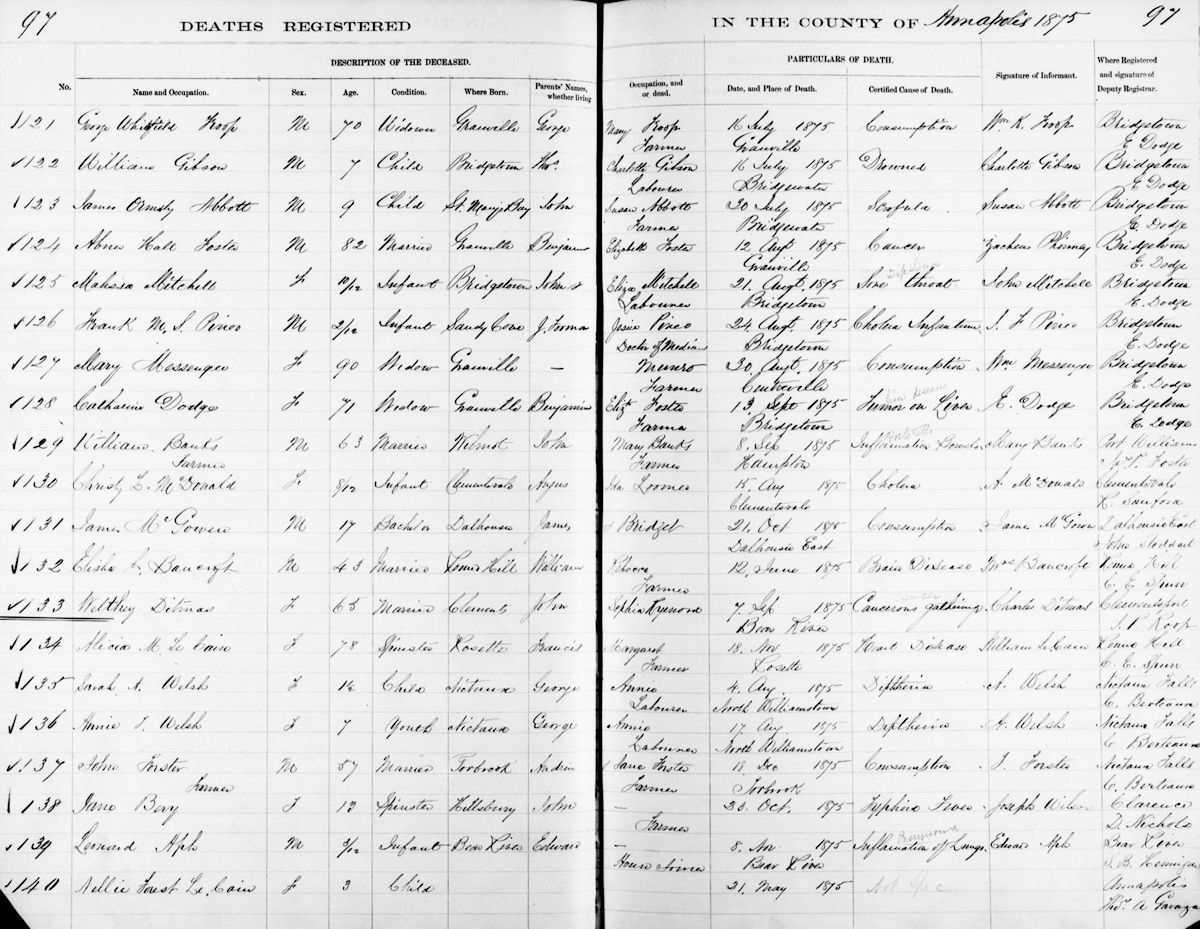 97 DEATHS REGISTERED IN THE COUNTY OF Annapolis 1875 97
DESCRIPTION OF THE DECEASED. PARTICULARS OF DEATH.
No. Name and Occupation. Sex. Age. Condition. Where Born. Parents' Names, whether living Occupation, and or dead. Date, and Place of Death. Certified Cause of Death. Signature of Informant. Where Registered and signature of Deputy Registrar.
121 George Whitfield Troop M 70 Widower Granville George Mary Troop 16 July 1875 Consumption Wm K. Troop Bridgetown
Farmer Granville E Dodge
122 William Gibson M 7 Child Bridgetown Thos. Charlotte Gibson 16 July 1875 Drowned Charlotte Gibson Bridgetown
Labourer Bridgewater E. Dodge
123 James Ormsby Abbott M 9 Child St. Marys Bay John Susan Abbott 30 July 1875 Scrofula Susan Abbott Bridgetown
Farmer Bridgewater E. Dodge
124 Abner Hall Foster M 82 Married Granville Benjamin Elizabeth Foster 12 Augt 1875 Cancer Zacheus Phinney Bridgetown
Granville E. Dodge
125 Malissa Mitchell F 10/12 Infant Bridgetown John & Eliza Mitchell 21. Augt 1875 Diptheria Sore throat John Mitchell Bridgetown
Labourer Bridgetown E. Dodge
126 Frank M. S. Pineo M 2/12 Infant Sandy Cove J. Forman Jessie Pineo 24 Augt. 1875 Cholera Infantum J. F Pineo Bridgetown
Doctor of Medicine Bridgetown E. Dodge
127 Mary Messenger F 90 Widow Granville — Munro 30 Augt. 1875 Consumption Wm Messenger Bridgetown
Farmer Centreville E. Dodge
128 Catharine Dodge F 71 Widow Granville Benjamin Elizt Foster 13 Sept 1875 Tumor on Liver E. Dodge Bridgetown
Farmer Bridgetown E. Dodge
129 William Banks M 63 Married Wilmot John Mary Banks 8. Sep 1875 Inflamation Bowels Mary Banks Port Williams
Farmer Farmer Hampton Foster
130 Christy L. McDonald F. 8/12 Infant Clementsvale Angus Ida Loomer 15. Aug 1875 Cholera A. McDonald Clementsvale
Clementsvale R. Sanford
131 James McGowen M 17 Bachelor Dalhousie James & Bridget 21. Oct 1875 Consumption James McGowen Dalhousie East
Dalhousie East John Stoddart
132 Elisha Bancroft M 43 Married Round Hill William Rebecca 12. June 1875 Brain Disease Mrs Bancroft Round Hill
Farmer C. E. Spurr
133 Welthey Ditmas F 65 Married Clements John Sophia Rymond 7. Sep 1875 Cancer Cancerous gathering Charles Ditmas Clementsport
Bear River Roop
134 Alicia M. Le Cain F 78 Spinster Rosette Francis Margaret 18. Nov 1875 Heart Disease William Le Cain Round Hill
Farmer Rosette C. E. Spurr
135 Sarah A. Welsh F 1½ Child Nictaux George Annie 4. Aug. 1875 Diptheria A. Welsh Nictaux Falls
Labourer North Williamstown C. Berteaux
136 Annie J. Welsh F 7 Youth Nictaux George Annie 17 Aug 1875 Diptheria A. Welsh Nictaux Falls
Labourer North Williamstown C Berteaux
137 John Forster M 57 Married Torbrook Andrew & Jane Forster 18. Dec 1875 Consumption J. Forster Nictaux Falls
Farmer Farmer Torbrook C. Berteaux
138 Jane Bery F 13 Spinster Hillsbury John — 23. Oct. 1875 Typhius Fever Joseph Wilson Clarence
Farmer D. Nichols
139 Leonard Aph M 3/12 Infant Bear River Edward — 8. Nov 1875 Pneumonia Inflamation of Lungs Edward Aph Bear River
Bear River
140 Nellie Forest Le Cain F 3 Child 21. May 1875 Not Spec Annapolis
Thos. A Gavaza